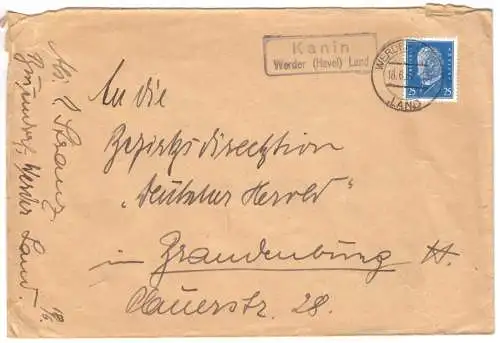 Kanin
Werder (Havel) Land
WERDER
18.6.
LAND
25 25
An die
Bezirksdirecktion
"Deutscher Herold"
in Brandenburg H.
Hauerstr. 28.
Werder
Land.